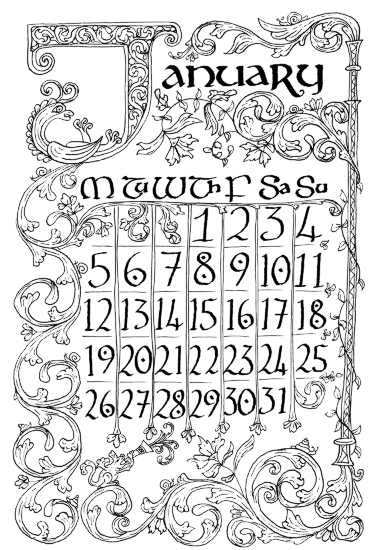 January
M Tu W Th F Sa Su
1 2 3 4
5 6 7 8 9 10 11
12 13 14 15 16 17 18
19 20 21 22 23 24 25
26 27 28 29 30 31